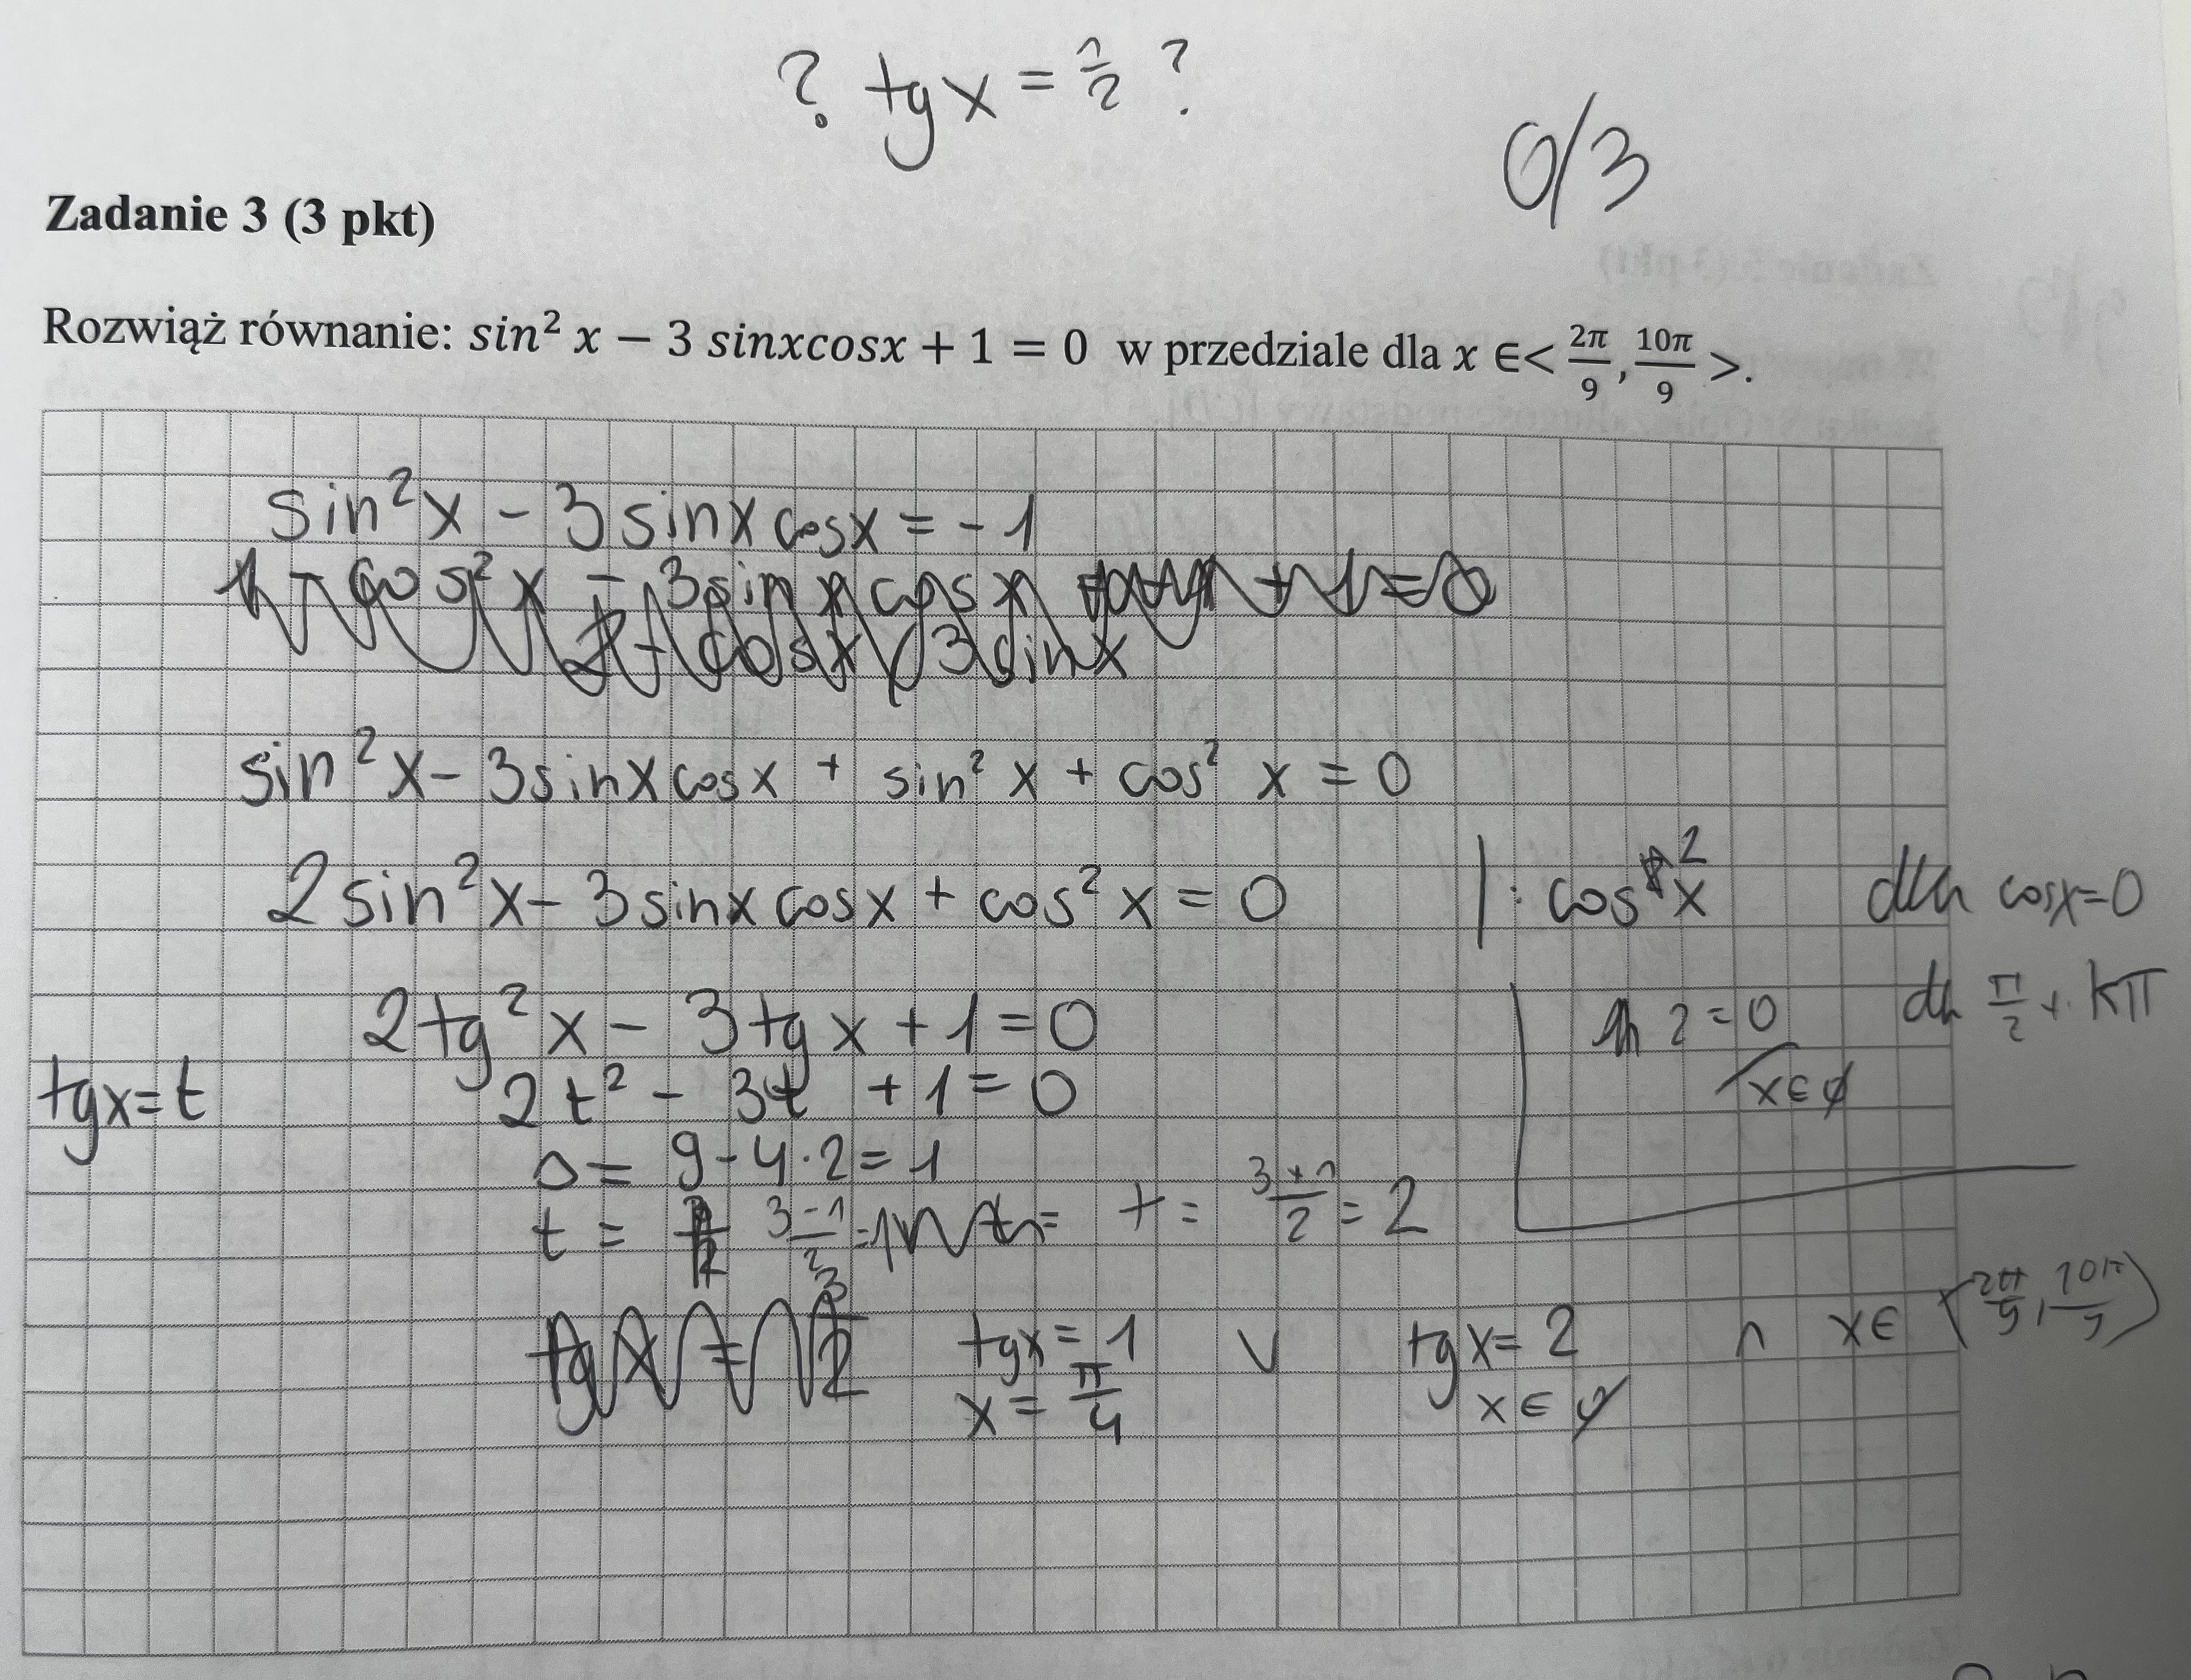 ? tg x = 1/2 ?
0/3
Zadanie 3 (3 pkt)
Rozwiąż równanie: sin² x − 3 sinxcosx + 1 = 0 w przedziale dla x ∈< 2π/9, 10π/9 >.
sin²x - 3sinx cosx = -1
sin²x - 3sinx cosx + sin² x + cos² x = 0
2sin²x - 3sinx cosx + cos² x = 0 |: cos² x dla cosx=0
2tg²x - 3tgx + 1 = 0 2=0 dla π/2 + kπ
x∈∅
tgx=t 2t² - 3t + 1 = 0
Δ = 9-4·2 = 1
t = (3-1)/2 = 1 t = (3+1)/2 = 2
tgx = 1 ∨ tgx = 2 ∧ x∈ ⟨2π/9, 10π/9⟩
x = π/4 x∈∅